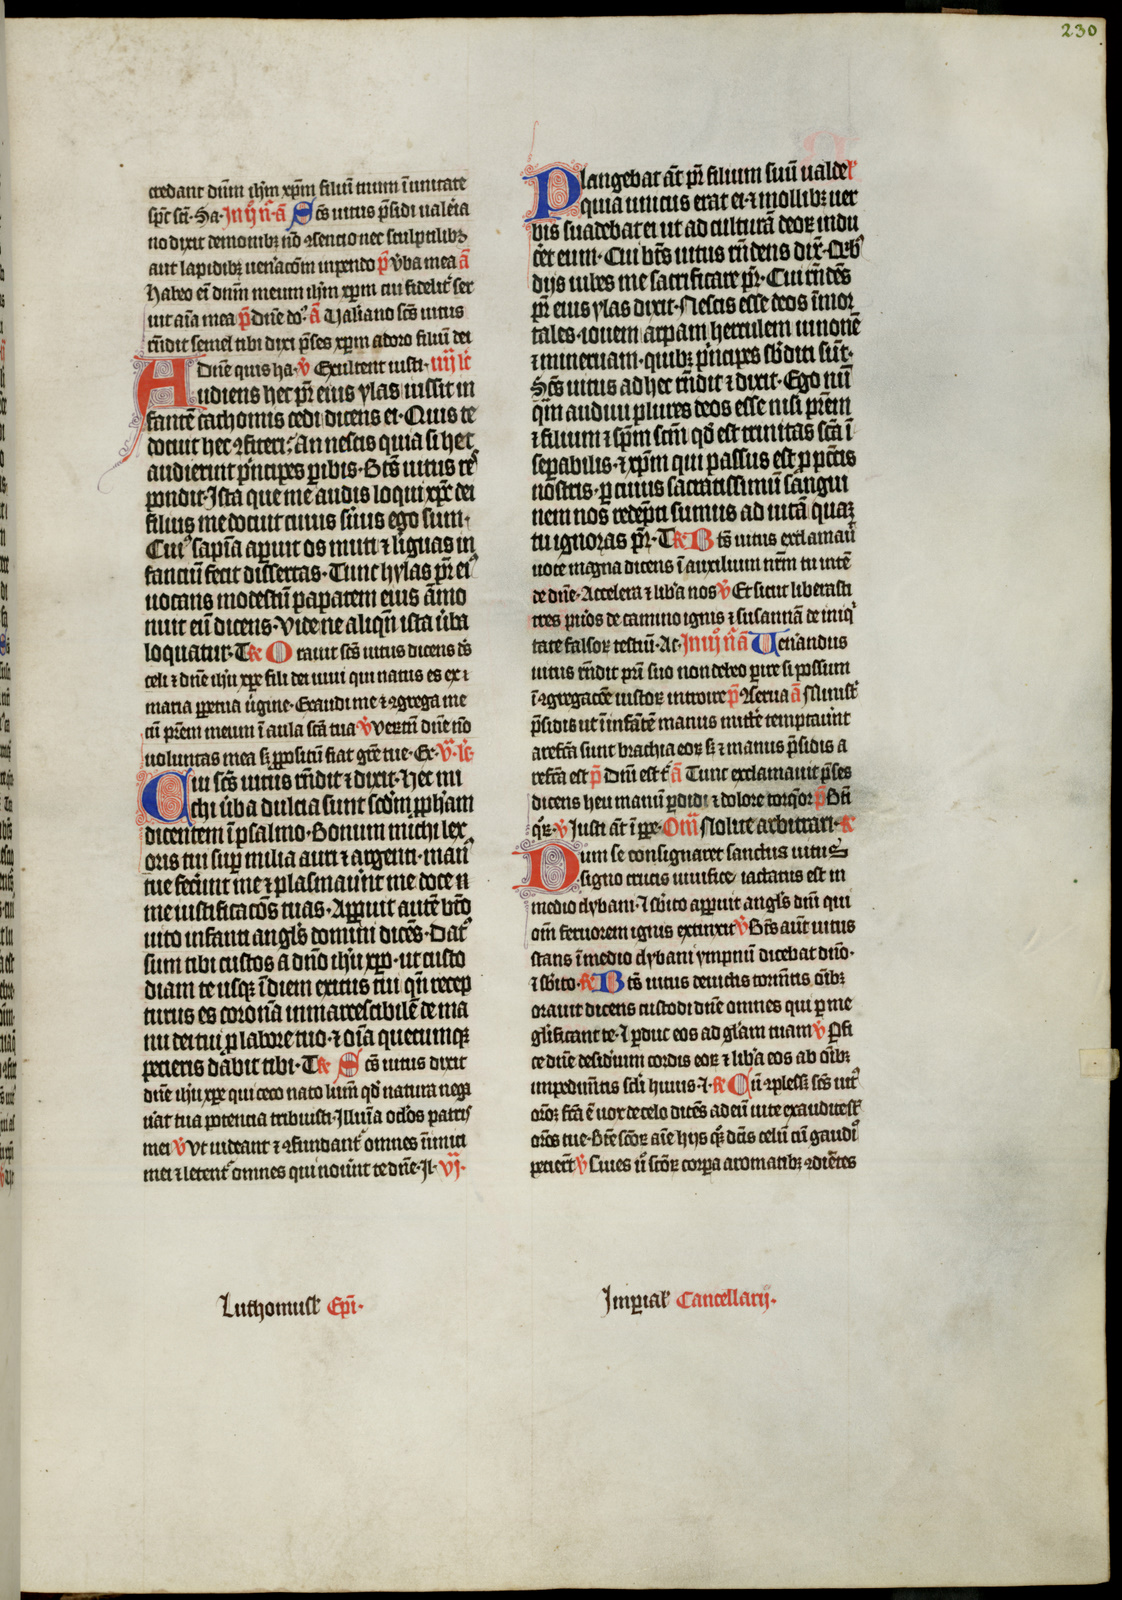 230
credant dnm ihm xpm filiū tuum ī unitate
spc scī · Sa · In ij n̄ · ā Scs uitus psidi ualeria
no dixit demonibꝫ nō ꝯsencio nec sculptilibꝫ
aut lapidibꝫ uenacōm inpendo p̄ v̄ba mea ā
Habeo ei dnm meum ihm xpm cui fidelit ser
uit aīa mea p̄ Dne dō · ā Valiano scs uitus
rn̄dit semel tibi dixi pses xpm adoro filiū dei
Dne quis ha · v̄ Exultent iusti · iiij lc
Audiens hec pr eius ylas iussit in
fantē cathomis cedi dicens ei · Quis te
docuit hec ꝯfiteri · An nescis quia si hec
audierint pncipes pibis · Bts uitus res
pondit · Ista que me audis loqui xpc dei
filius me docuit cuius suus ego sum ·
Cuiꝰ sapīa apuit os muti ⁊ liguas in
fanciū fecit dissertas · Tunc hylas pr eiꝰ
uocans modestiū papatem eius āmo
nuit eū dicens · Vide ne aliqn ista ūba
loquatur · T R̄ Orauit scs uitus dicens ds
celi ⁊ dne ihu xpe fili dei uiui qui natus es ex ⁊
maria ppetua ugine · Exaudi me ⁊ ꝯgrega me
cū prem meum ī aula scā tua v̄ Verum dne nō
uoluntas mea sꝫ ppositū fiat gre tue · Ex · v̄ · lc
Cui scs uitus rn̄dit ⁊ dixit · Hec mi
chi ūba dulcia sunt scdm pphām
dicentem ī psalmo · Bonum michi lex
oris tui sup milia auri ⁊ argenti · manꝰ
tue fecunt me ⁊ plasmaunt me doce n
me iustificacōs tuas · Appuit autē bto
uito infanti angls domini dicēs · Datꝰ
sum tibi custos a dno ihu xpo · ut custo
diam te usqꝫ ī diem exitus tui qn recep
turus es coronā inmarcescibilē de ma
nu dei tui p labore tuo · ⁊ oīa quecumqꝫ
pecieris dabit tibi · T R̄ Scs uitus dixit
dne ihu xpe qui ceco nato lum qd natura nega
uat tua potencia tribuisti · Illumīa oclos patris
mei v̄ Vt uideant ⁊ ꝯfundant omnes inimici
mei ⁊ letent omnes qui nouint te dne · Il · vj ·
Plangebat aūt pr filium suū ualde
quia unicus erat ei · ⁊ mollibꝫ uer
bis suadebat ei ut ad culturā deoꝝ indu
ceret eum · Cui bts uitus rn̄dens dix · Orbꝰ
dijs iubes me sacrificare pr · Cui rn̄dēs
pr eius ylas dixit · Nescis esse deos īmor
tales · iouem arpam herculem iunonē
⁊ mineruam · quibꝫ pncipes sbditi sūt ·
Scs uitus ad hec rn̄dit ⁊ dixit · Ego nū
qm audiui plures deos esse nisi prēm
⁊ filium ⁊ spm scm qd est trinitas scā ī
sepabilis · ⁊ xpm qui passus est p pctis
nostris · p cuius sacratissimū sangui
nem nos redempti sumus ad uitā quaꝫ
tu ignoras pr · T R̄ Bts uitus exclamauit
uoce magna dicens ī auxilium nrm tu inte
de dne · Accelera ⁊ liba nos v̄ Et sicut liberasti
tres puos de camino ignis ⁊ susannā de iniqꝫ
tate falsoꝝ testiū · Ac · In iij n̄ ā Venandus
uitus rn̄dit pri suo non debeo pire si possum
ī ꝯgregacōe iustoꝝ introire p̄ ꝯserua ā Ministri
psidis ut ī infātē manus mittē temptauint
arefcā sunt brachia eoꝝ sꝫ ⁊ manus psidis a
refcā est p̄ Dnī est t ā Tunc exclamauit pses
dicens heu manū pdidi ⁊ dolore torqor p̄ Bti
qꝝ · v̄ Justi aūt ī ppe · Om̄ Nolite arbitrari · R̄
Dum se consignaret sanctus uitus
signo crucis uiuifice iactatus est in
medio clybani · ⁊ sbito appuit angls dni qui
om feruorem ignis extinxit v̄ Bts aut uitus
stans ī medio clybani ympnū dicebat dno ·
⁊ sbito · R̄ Bts uitus deuictis tormtis oībꝫ
orauit dicens custodi dne omnes qui p me
glificant te · ⁊ pduc eos ad glam tuam v̄ Pfi
ce dne desidium cordis eoꝝ ⁊ liba eos ab oībꝫ
impedimtis scli huius · ⁊ · R̄ Cū ꝯplesꝫ scs uitꝰ
orōꝫ fcā ē uox de celo dicēs ad eū uite exaudite sꝫ
orōs tue · Bte scōꝝ aīe hijs qꝫ dātis celū cū gaudiꝰ
pecierūt v̄ Ciues u scōꝝ corpa aromatibꝫ ꝯdientes
Luthomusł Epi ·
Imperial Cancellarij ·